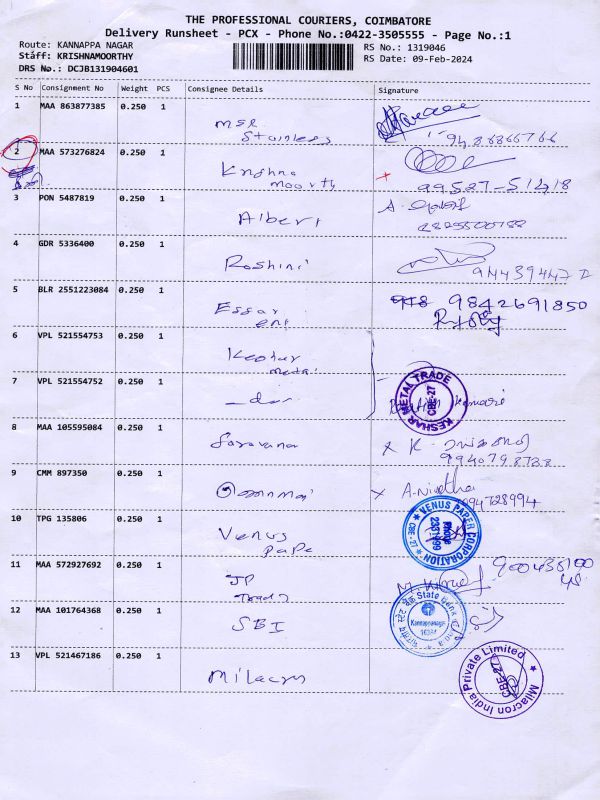 THE PROFESSIONAL COURIERS, COIMBATORE
Delivery Runsheet - PCX - Phone No.:0422-3505555 - Page No.:1
Route: KANNAPPA NAGAR
Staff: KRISHNAMOORTHY
DRS No.: DCJB131904601
RS No.: 1319046
RS Date: 09-Feb-2024
S No Consignment No Weight PCS Consignee Details Signature
1 MAA 863877385 0.250 1 MSR Stainless
2 MAA 573276824 0.250 1 Krishna moorthy 99527-51418
3 PON 5487819 0.250 1 Albert A.
4 GDR 5336400 0.250 1 Roshini
5 BLR 2551223084 0.250 1 Essar ent 9842691850
6 VPL 521554753 0.250 1 Keshar metal
7 VPL 521554752 0.250 1 -do- KESHAR METAL TRADE CBE-27
8 MAA 105595084 0.250 1 Saravana K.
9 CMM 897350 0.250 1 A.Nivetha
10 TPG 135806 0.250 1 Venus Pape VENUS PAPER CORPORATION Phone CBE-27
11 MAA 572927692 0.250 1 JP
12 MAA 101764368 0.250 1 SBI State Bank Kannappanagar
13 VPL 521467186 0.250 1 Milacron Milacron India Private Limited CBE-27